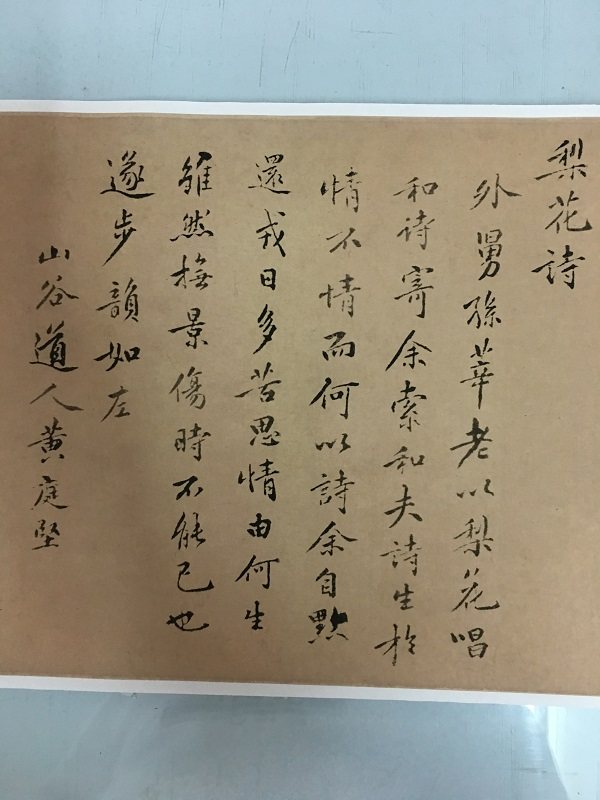 梨花詩
外舅孫莘老以梨花唱
和诗寄余索和夫詩生於
情不情而何以詩余自黜
還戎日多苦思情由何生
雖然撫景傷時不能已也
遂步韻如左
山谷道人黄庭堅